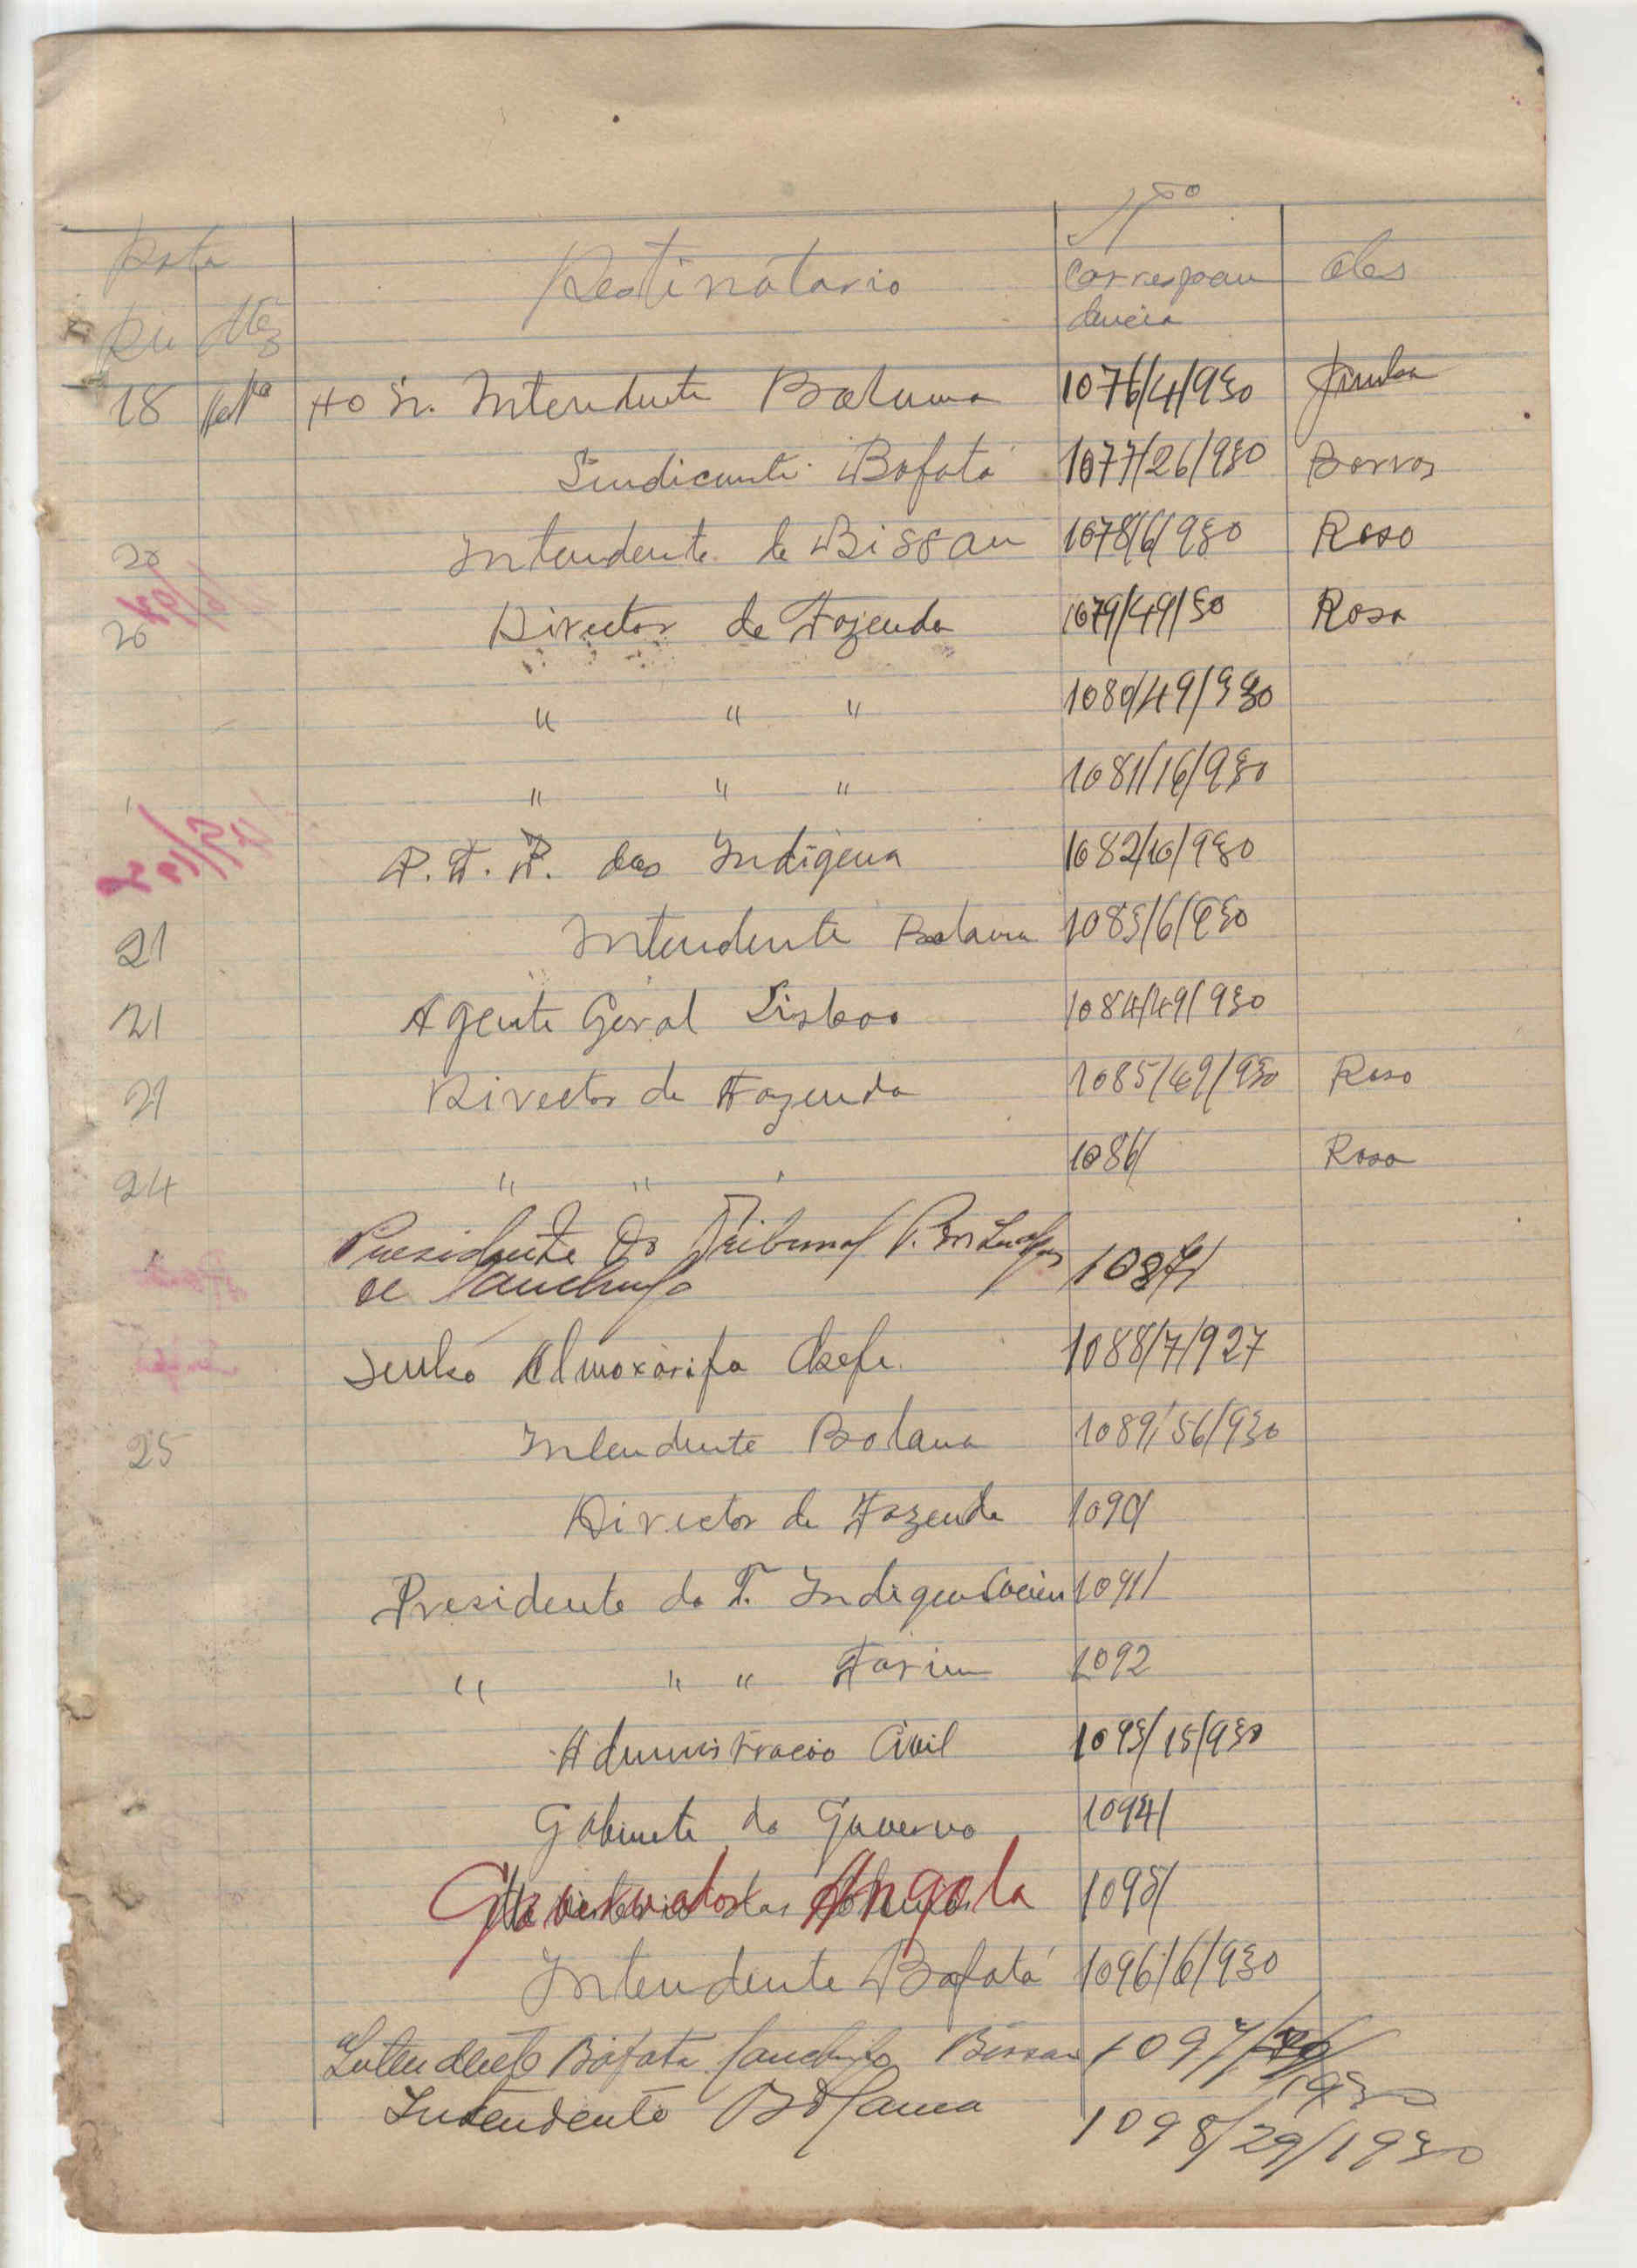 Data Destinatario Nº
Correspon Obs
Dia Mez dencia
18 Ao Sr. Intendente Bolama 1076/4/930
Sindicante Bafatá 1077/26/930 Barros
20 Intendente de Bissau 1078/6/930 Rosa
20 Director de Fazenda 1079/49/30 Rosa
" " " 1080/49/930
" " " 1081/16/930
P. T. P. dos Indigena 1082/16/930
21 Intendente Bolama 1083/6/930
21 Agente Geral Lisboa 1084/49/930
21 Director de Fazenda 1085/49/930 Rosa
24 " " " 1086/ Rosa
Presidente do Tribunal P.
de Canchungo 1087/
Almoxarifa Chefe 1088/7/927
25 Intendente Bolama 1089/56/930
Director de Fazenda 1090/
Presidente do T. Indigena Cacheu 1091/
" " " Farim 1092
Administração Civil 1093/15/930
Gabinete do Governo 1094/
Governador Angola 1095/
Intendente Bafatá 1096/6/930
Intendente Bafata Canchungo Bissau 1097/
1930
Intendente Bolama 1098/29/1930